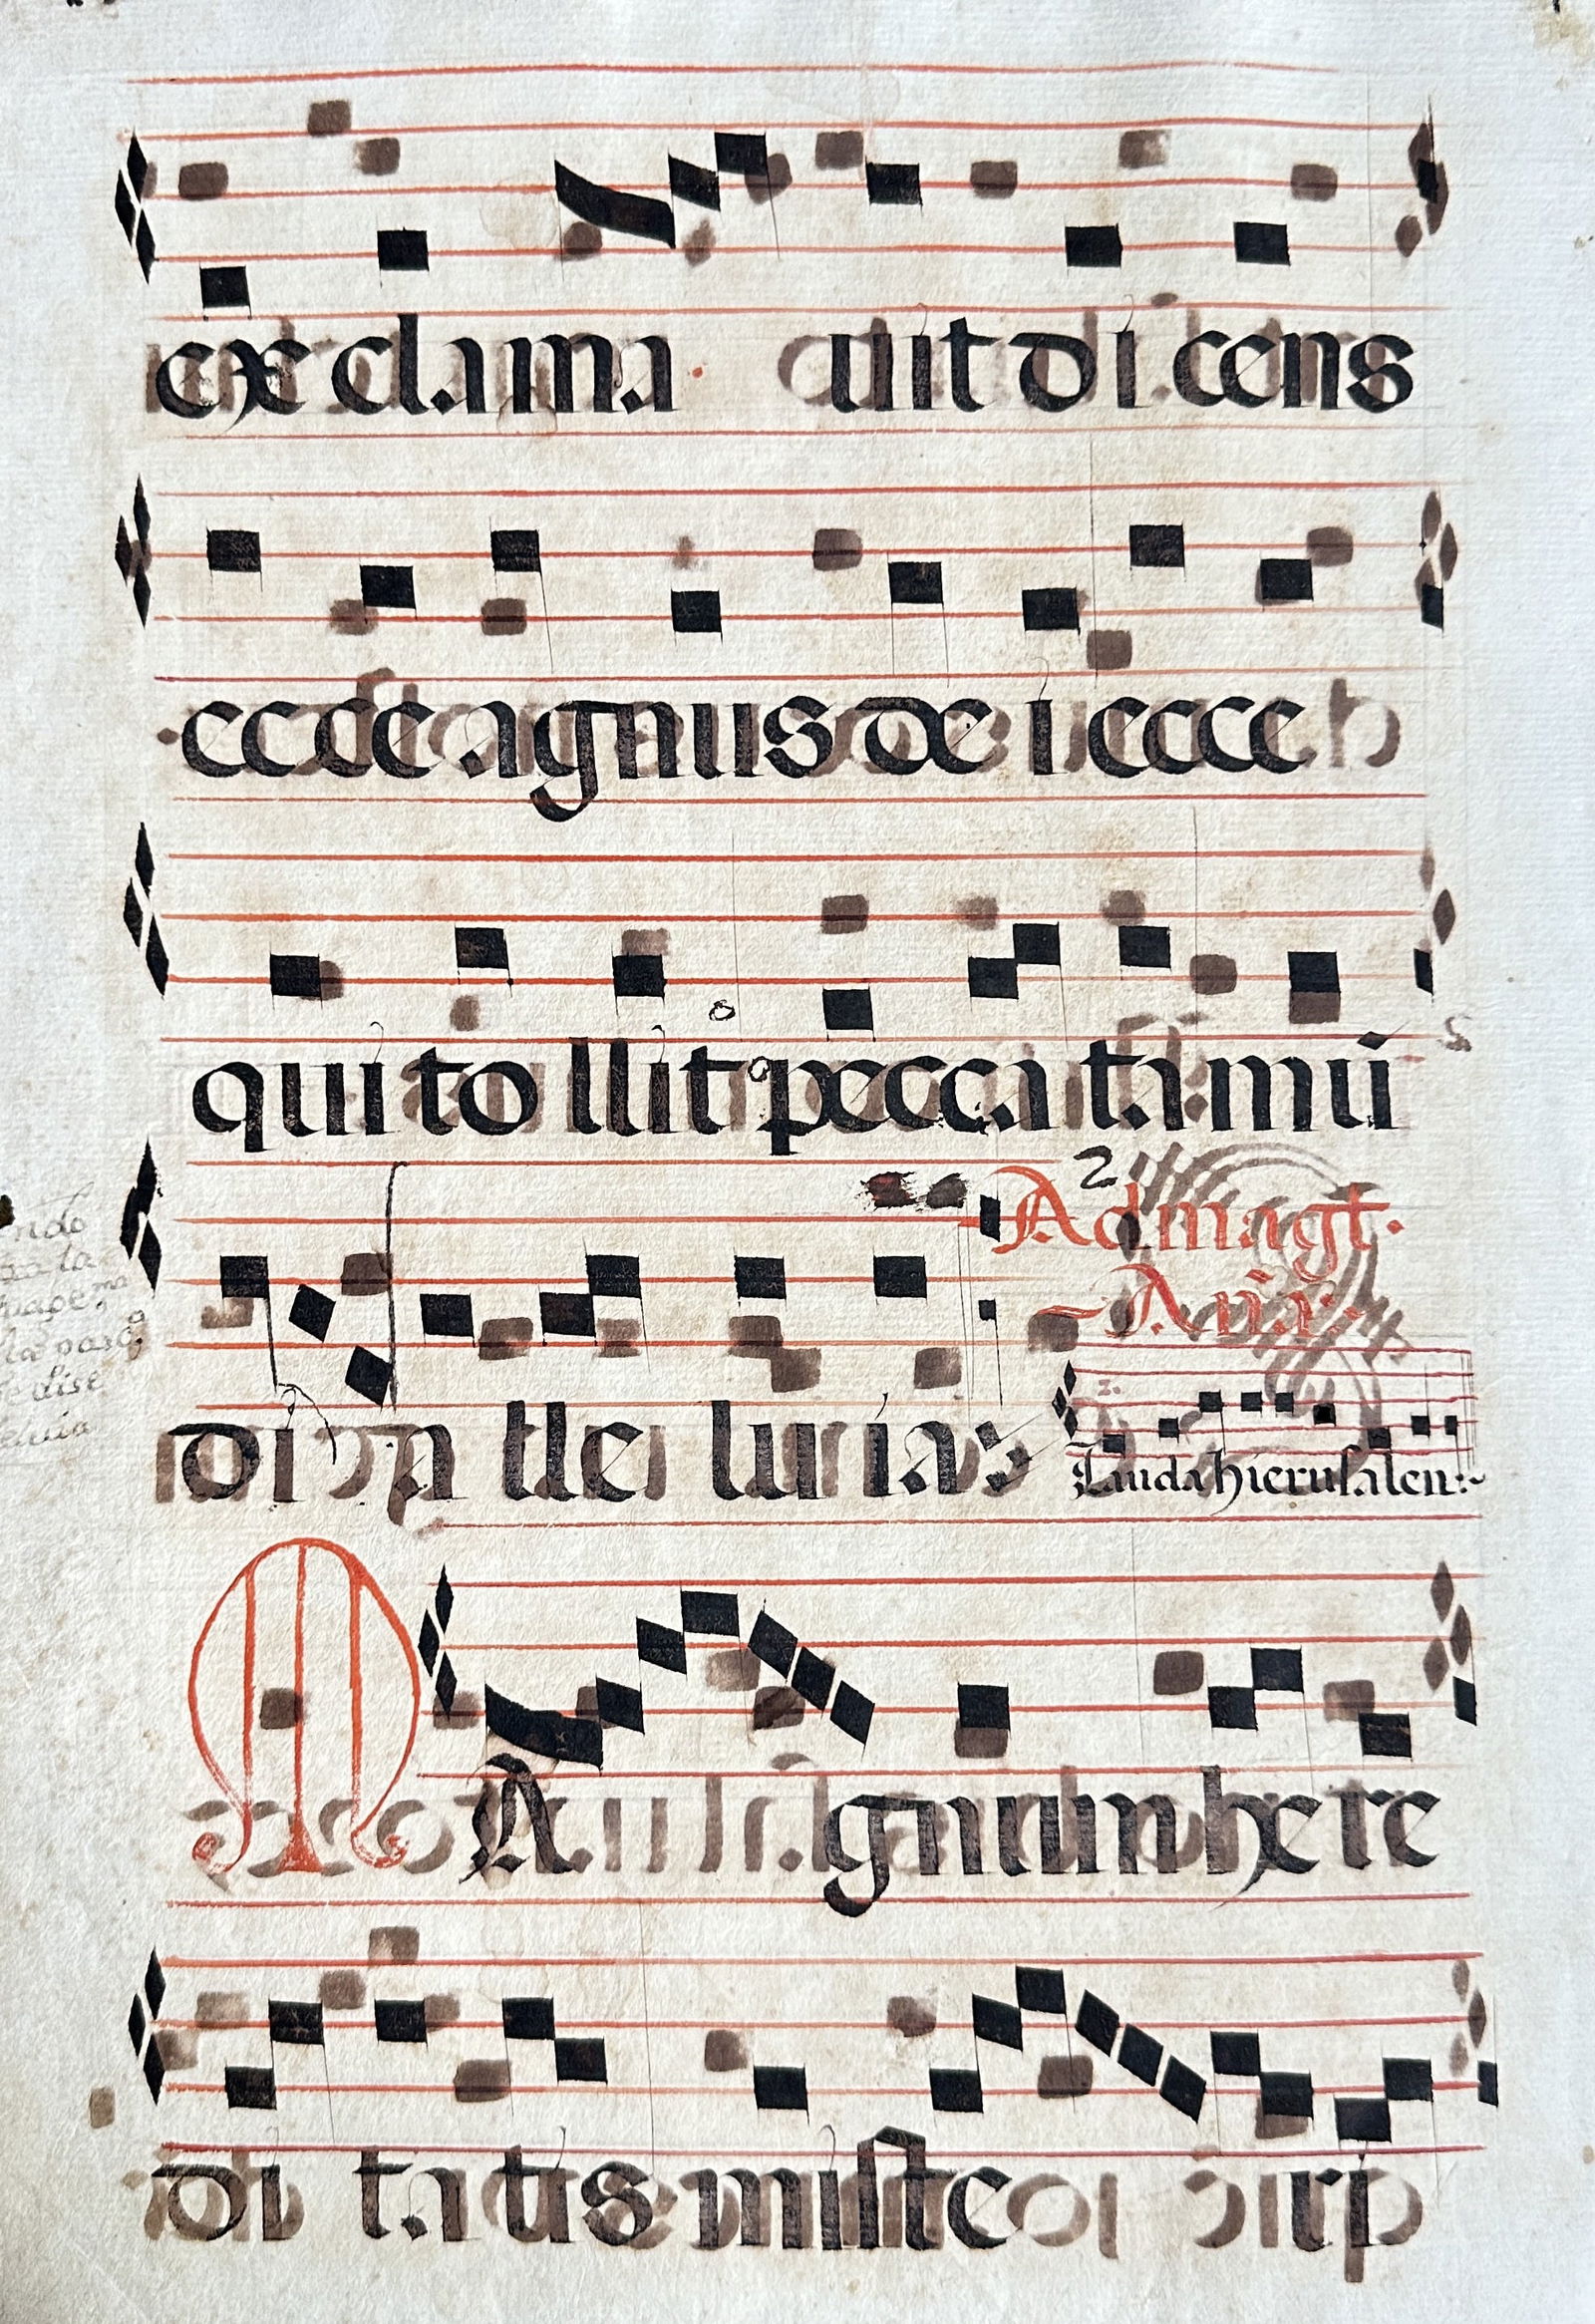 ex clama uit di cens
ecce agnus de i ecce
qui to llit pecca ta mū
di a lle lu ia
2
Ad magt.
Aña.
Lauda hierusalem
MAgnum here
di ta tis miste ri